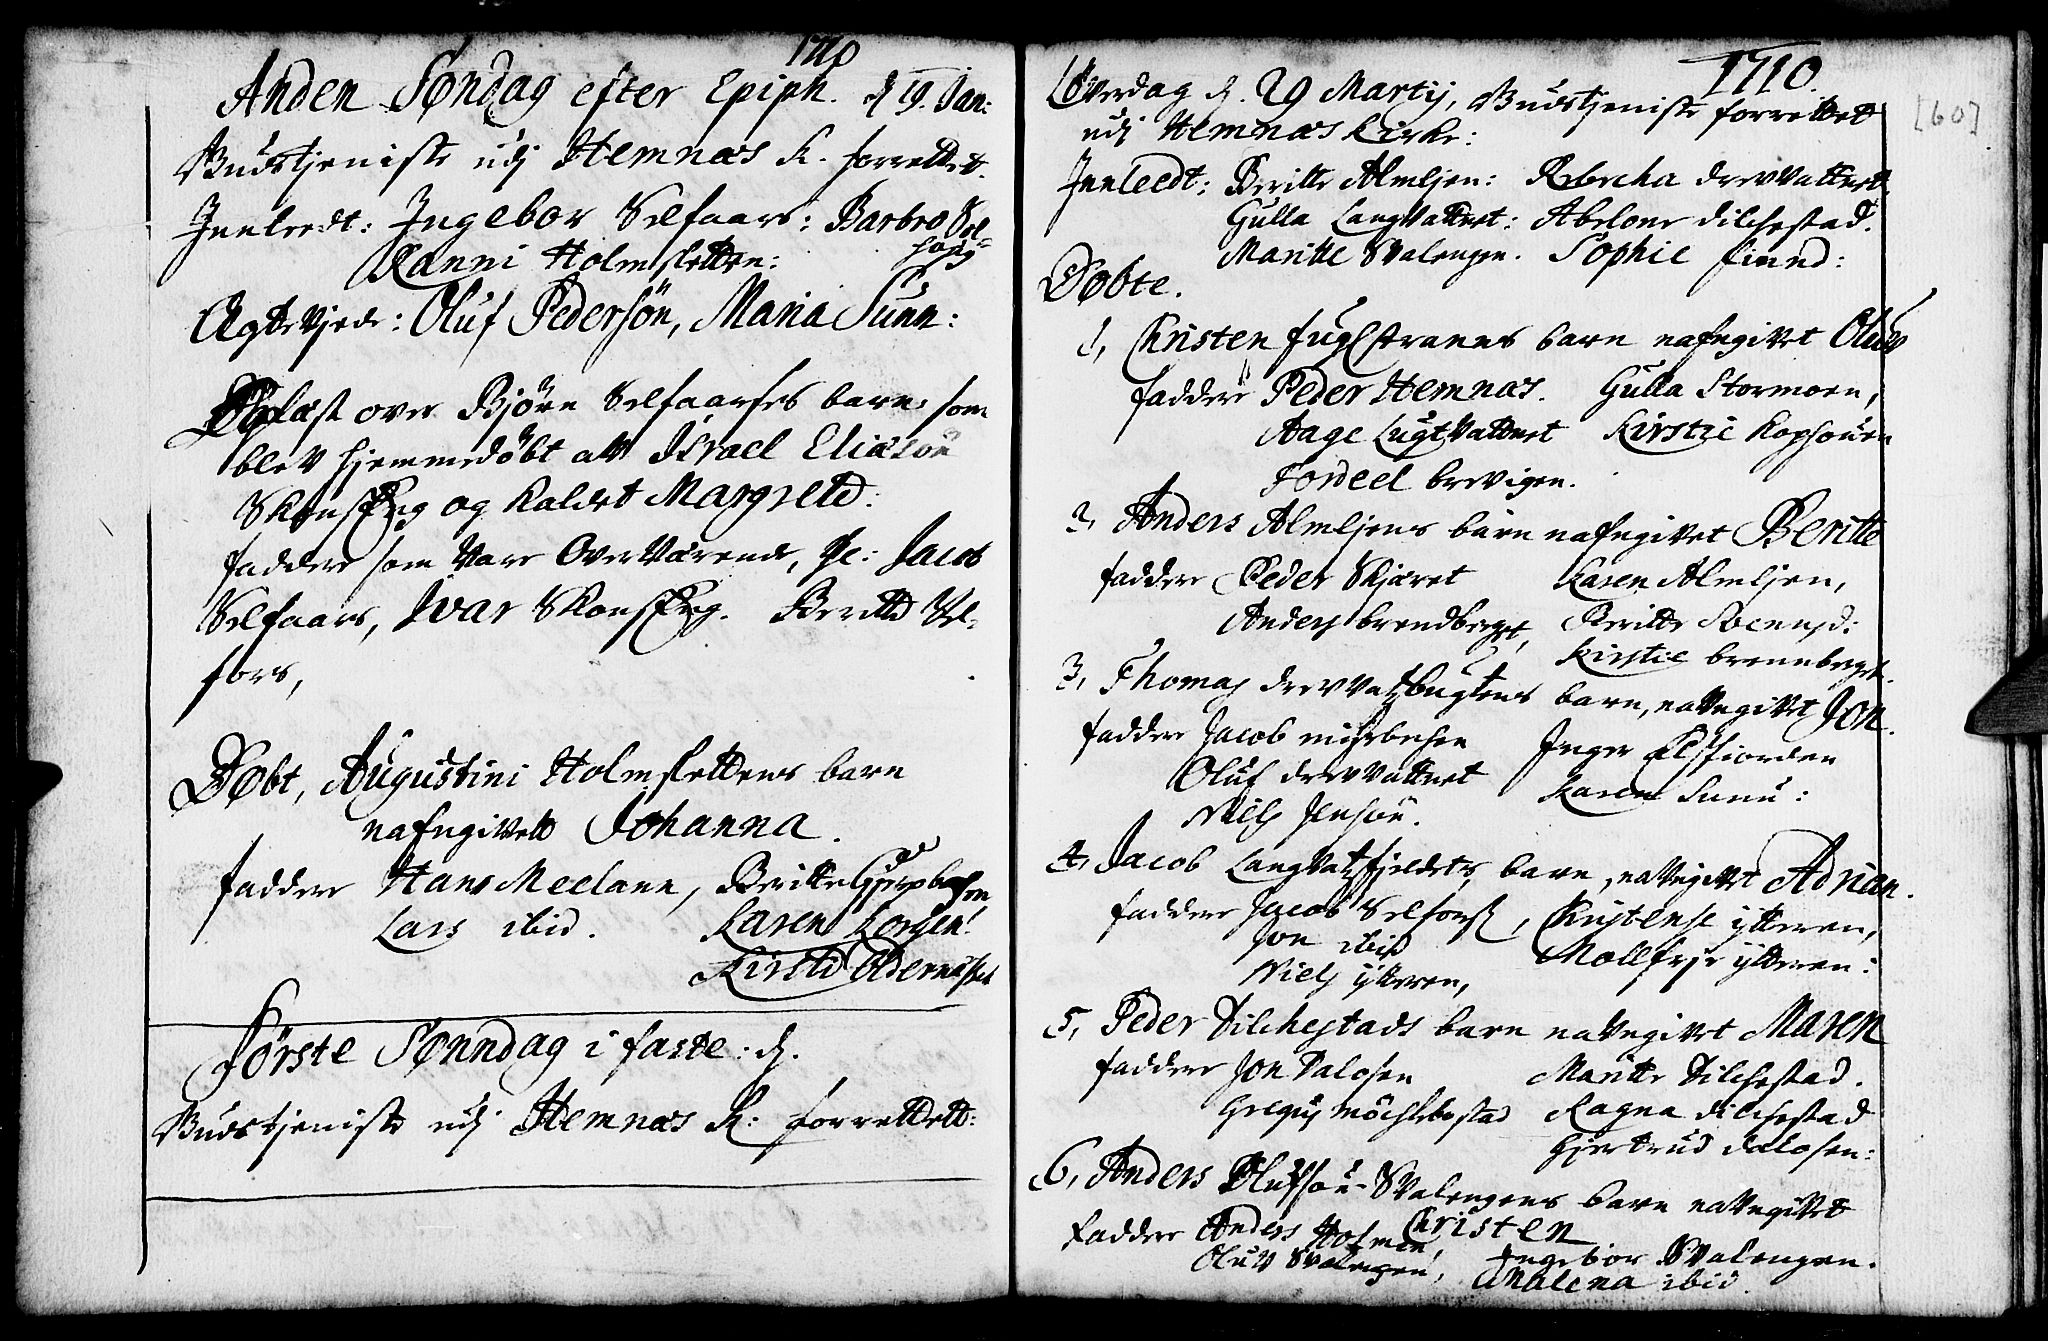 1710
Anden Søndag efter Epiph. d 19. Jan:
Gudstjeniste udj Hemnæs K. forrettet.
Jnnleedt: Jngebor Selfaars: Barbro Sel=
Ranni Holmsletten:
Ægtevjede: Oluf Pedersön, Maria Sunn:
Oplæst over Björn Selfaarses barn, som
blev hjemmedöbt aff Jsrael Eliasön
og kaldet Margrete:
faddere som vare Overværende, Jacob
Selfaars, Jvar Beritte Sel-
fors,
Döbt, Augustini Holmslettens barn
nafngivett Johanna.
faddere Hans Meelann, Beritte
Lars ibid. Karen Korgen!
Kirste
Förste Sønndag i faste: d.
Gudstjeniste udj Hemnæs K: forrettett:
1710.
[60]
Löverdag d. 29 Martij, Gudstjeniste forrettet
udj Hemnæs Kirke:
Jnnleedt: Beritte Almljen: Rebecha drevvattnet
Gulla Langvattnet: Abelone dilchestad.
Maritte Svalengen. Sophie finnd:
Döbte.
1, Christen fuglstranns barn nafngivet Oluv
faddere Peder Hemnæs. Gulla Stormoen,
Aage Lugtvattnet Kirstie
Tordeel brevigen.
2, Anders Almljens barn nafngivet Beritte
faddere Peder Skjæret Karen Almljen,
Anders brendberget, Beritte
Kirstie
3, Thomas barn, navngivet Jon.
faddere Jacob Jnger Elsfiorden
Oluf drevvattnet Karen Sunn:
Niels Jensön.
4, Jacob Langvatzfjeldets barn, navngivet Adrian.
faddere Jacob Selfors, Christense ytteren,
Jon ibid
Niels ytteren, ytteren:
5, Peder Dilchestads barn navngivet Maren
faddere Jon Dalosen Maritte Dilchestad.
Gregus Ragna dilchestad
Gjertrud dalosen:
6, Anders Olufsön Svalengens barn navngivet
Christen
faddere Anders Holmen, Jngebor Svalengen.
Oluv Svalengen, Malena ibid.